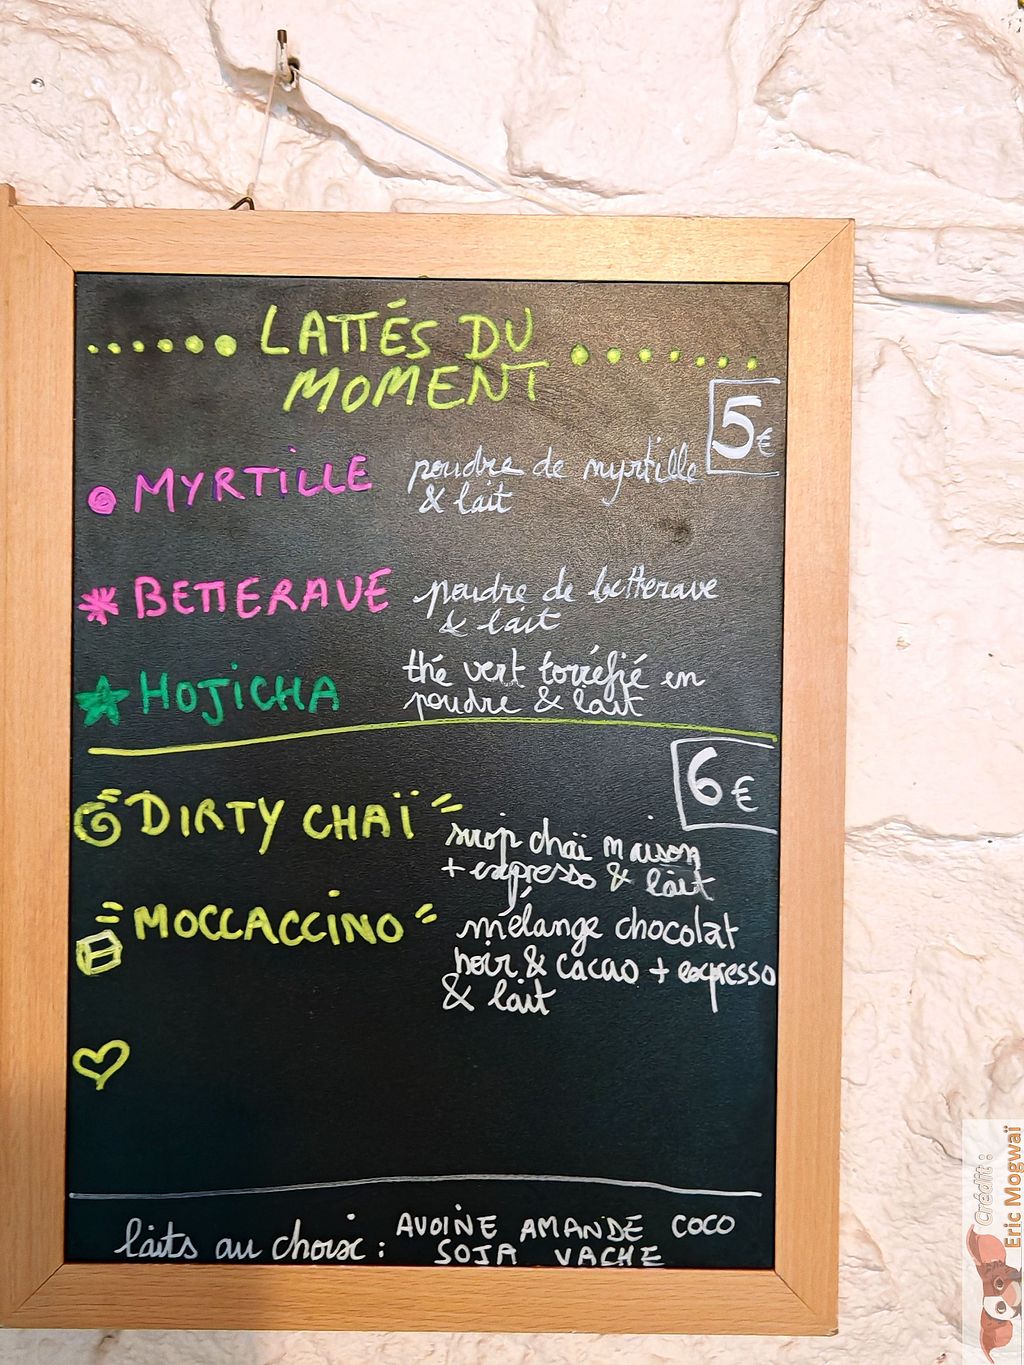 LATTÉS DU
MOMENT
5€
MYRTILLE
poudre de myrtille
& lait
BETTERAVE
poudre de betterave
& lait
HOJICHA
thé vert torréfié en
poudre & lait
6€
DIRTY CHAÏ
sirop chaï maison
+ expresso & lait
MOCCACCINO
mélange chocolat
noir & cacao + expresso
& lait
laits au choix : AVOINE AMANDE COCO
SOJA VACHE
Crédit :
Eric Mogwaï